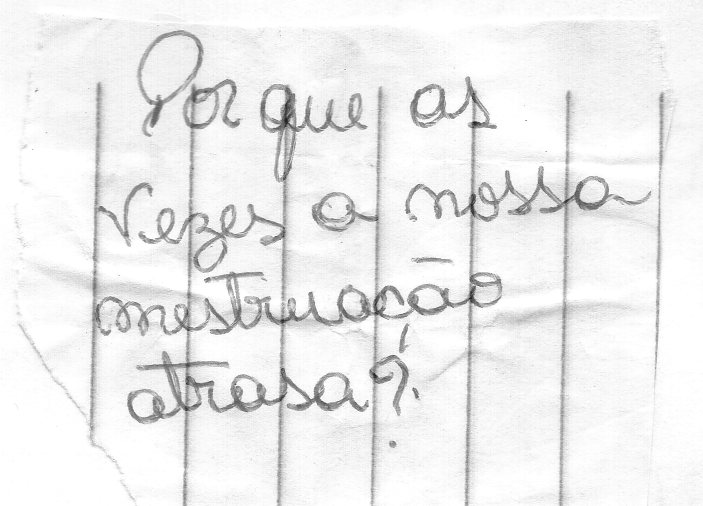 Por que as
vezes a nossa
mestruação
atrasa?